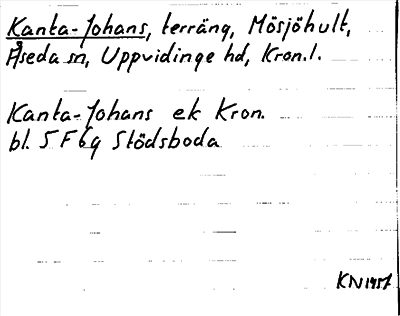 Kanta-Johans, terräng, Mösjöhult,
Åseda sn, Uppvidinge hd, Kron.l.
Kanta-Johans ek Kron.
bl. 5 F 6g Stödsboda
KN 1957